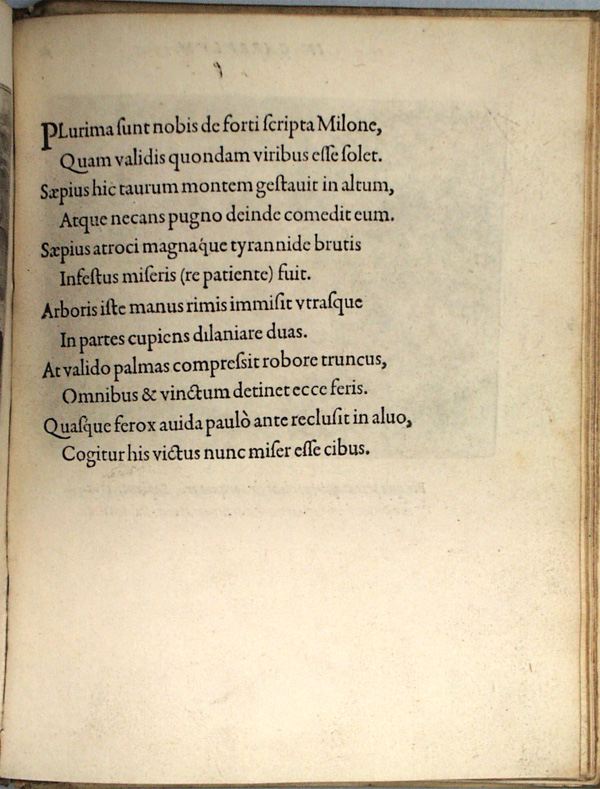 PLurima ſunt nobis de forti ſcripta Milone,
Quam validis quondam viribus eſſe ſolet.
Sæpius hic taurum montem geſtauit in altum,
Atque necans pugno deinde comedit eum.
Sæpius atroci magnaq́ue tyrannide brutis
Infeſtus miſeris (re patiente) fuit.
Arboris iſte manus rimis immiſit vtraſque
In partes cupiens dilaniare duas.
At valido palmas compreſsit robore truncus,
Omnibus & vinctum detinet ecce feris.
Quaſque ferox auida paulò ante recluſit in aluo,
Cogitur his victus nunc miſer eſſe cibus.